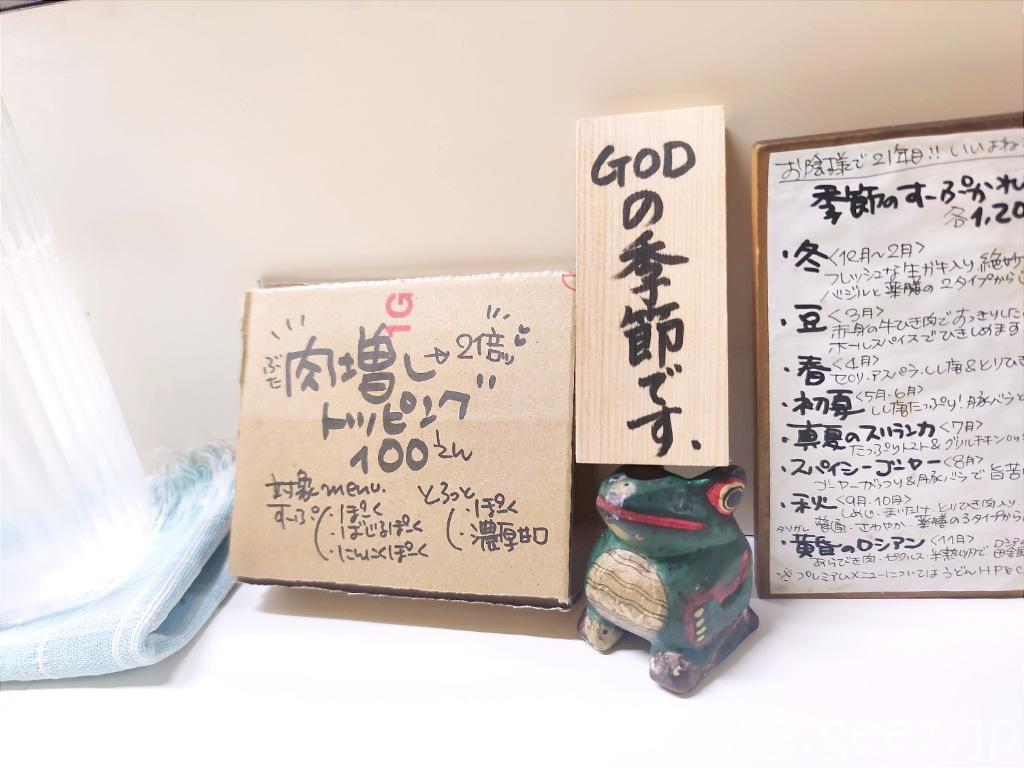 1G
ぶた 肉増し→2倍ッ
トッピング
100えん
対象menu.
すーぷ
・ぽく
・ばじるぽく
・にんにくぽく
とろっと
・ぽく
・濃厚甘口
GOD
の
季
節
で
す.
お陰様で21年目!! いいよね
季節のすーぷかれ
各1,20
・冬<12月～2月>
フレッシュな生ガキ入り 絶妙
バジルと薬膳の2タイプから
・豆<3月>
赤身の牛ひき肉ですっきりした
ホールスパイスでひきしめます
・春<4月>
セロリ・アスパラ・しし唐&とりひき
・初夏<5月・6月>
しし唐たっぷり!豚バラと
・真夏のスリランカ<7月>
たっぷりトマト&グリルチキン
・スパイシーゴーヤー<8月>
ゴーヤーがっつり&豚バラで旨苦
・秋<9月・10月>
しめじ・まいたけ・とりひき肉入り
さわやか 薬膳の3タイプから
・黄昏のロシアン<11月>
あらびき肉・ピクルス・半熟
※プレミアムメニューについてはうどんHP
.geez.jp